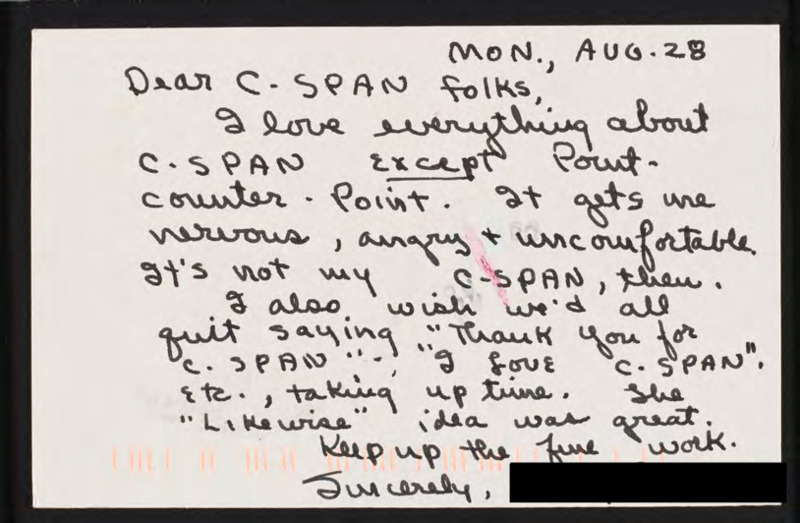 MON., AUG. 28
Dear C-SPAN folks,
I love everything about
C-SPAN Except Point-
counter-Point. It gets me
nervous, angry + uncomfortable.
It's not my C-SPAN, then.
I also wish we'd all
quit saying "Thank you for
C-SPAN" - "I love C-SPAN".
Etc., taking up time. The
"Likewise" idea was great.
Keep up the fine work.
Sincerely,